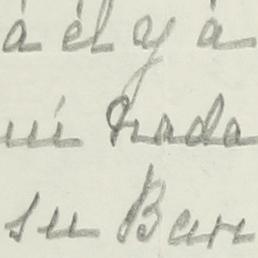 á él y á
mi Prada
su Bar